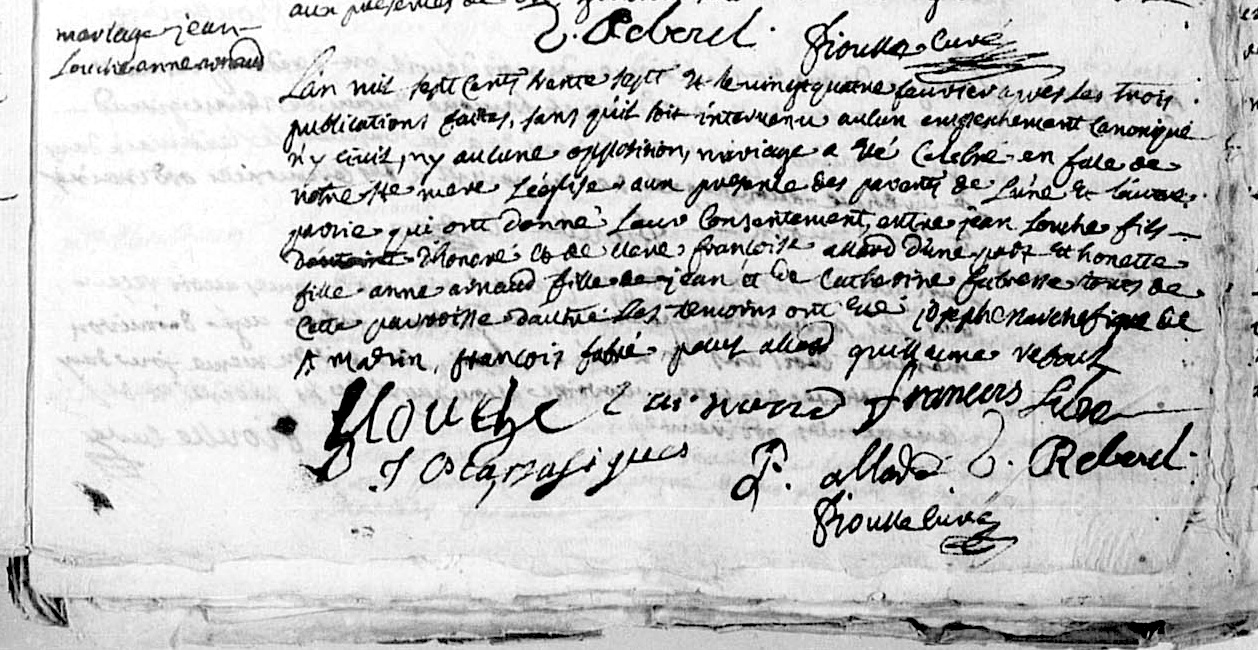 aux presences de
mariage jean
Louche anne arnaud
G. Reberel. Sioulle curé
L'an mil sept cents trente sept et le vingt quatre fevrier apres les trois
publications faites, sans qu'il soit intervenu aucun empeschement canonique
n'y civil, ny aucune opposition, mariage a eté celebré en face de
notre Ste mere L'eglise aux presence des parents de L'une et L'autre
partie qui ont donné Leur Consentement, entre jean Louche fils
d'honoré et de francoise allard d'une part et honette
fille anne arnaud fille de jean et de Catherine fabresse touts de
cette parroisse d'autre Les temoins ont eté joseph
francois fabre paul allard guillaume reboul
J Louche arnaud francois fabre
P. allard G. Reberel.
Sioulle curé